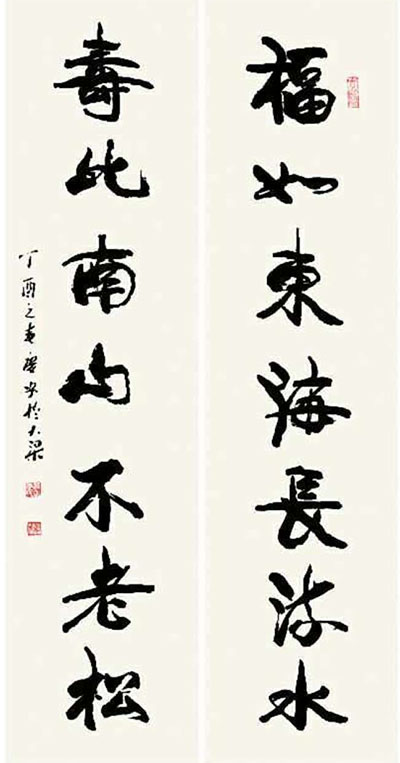 福如東海長流水
壽比南山不老松
丁酉之春
於大梁